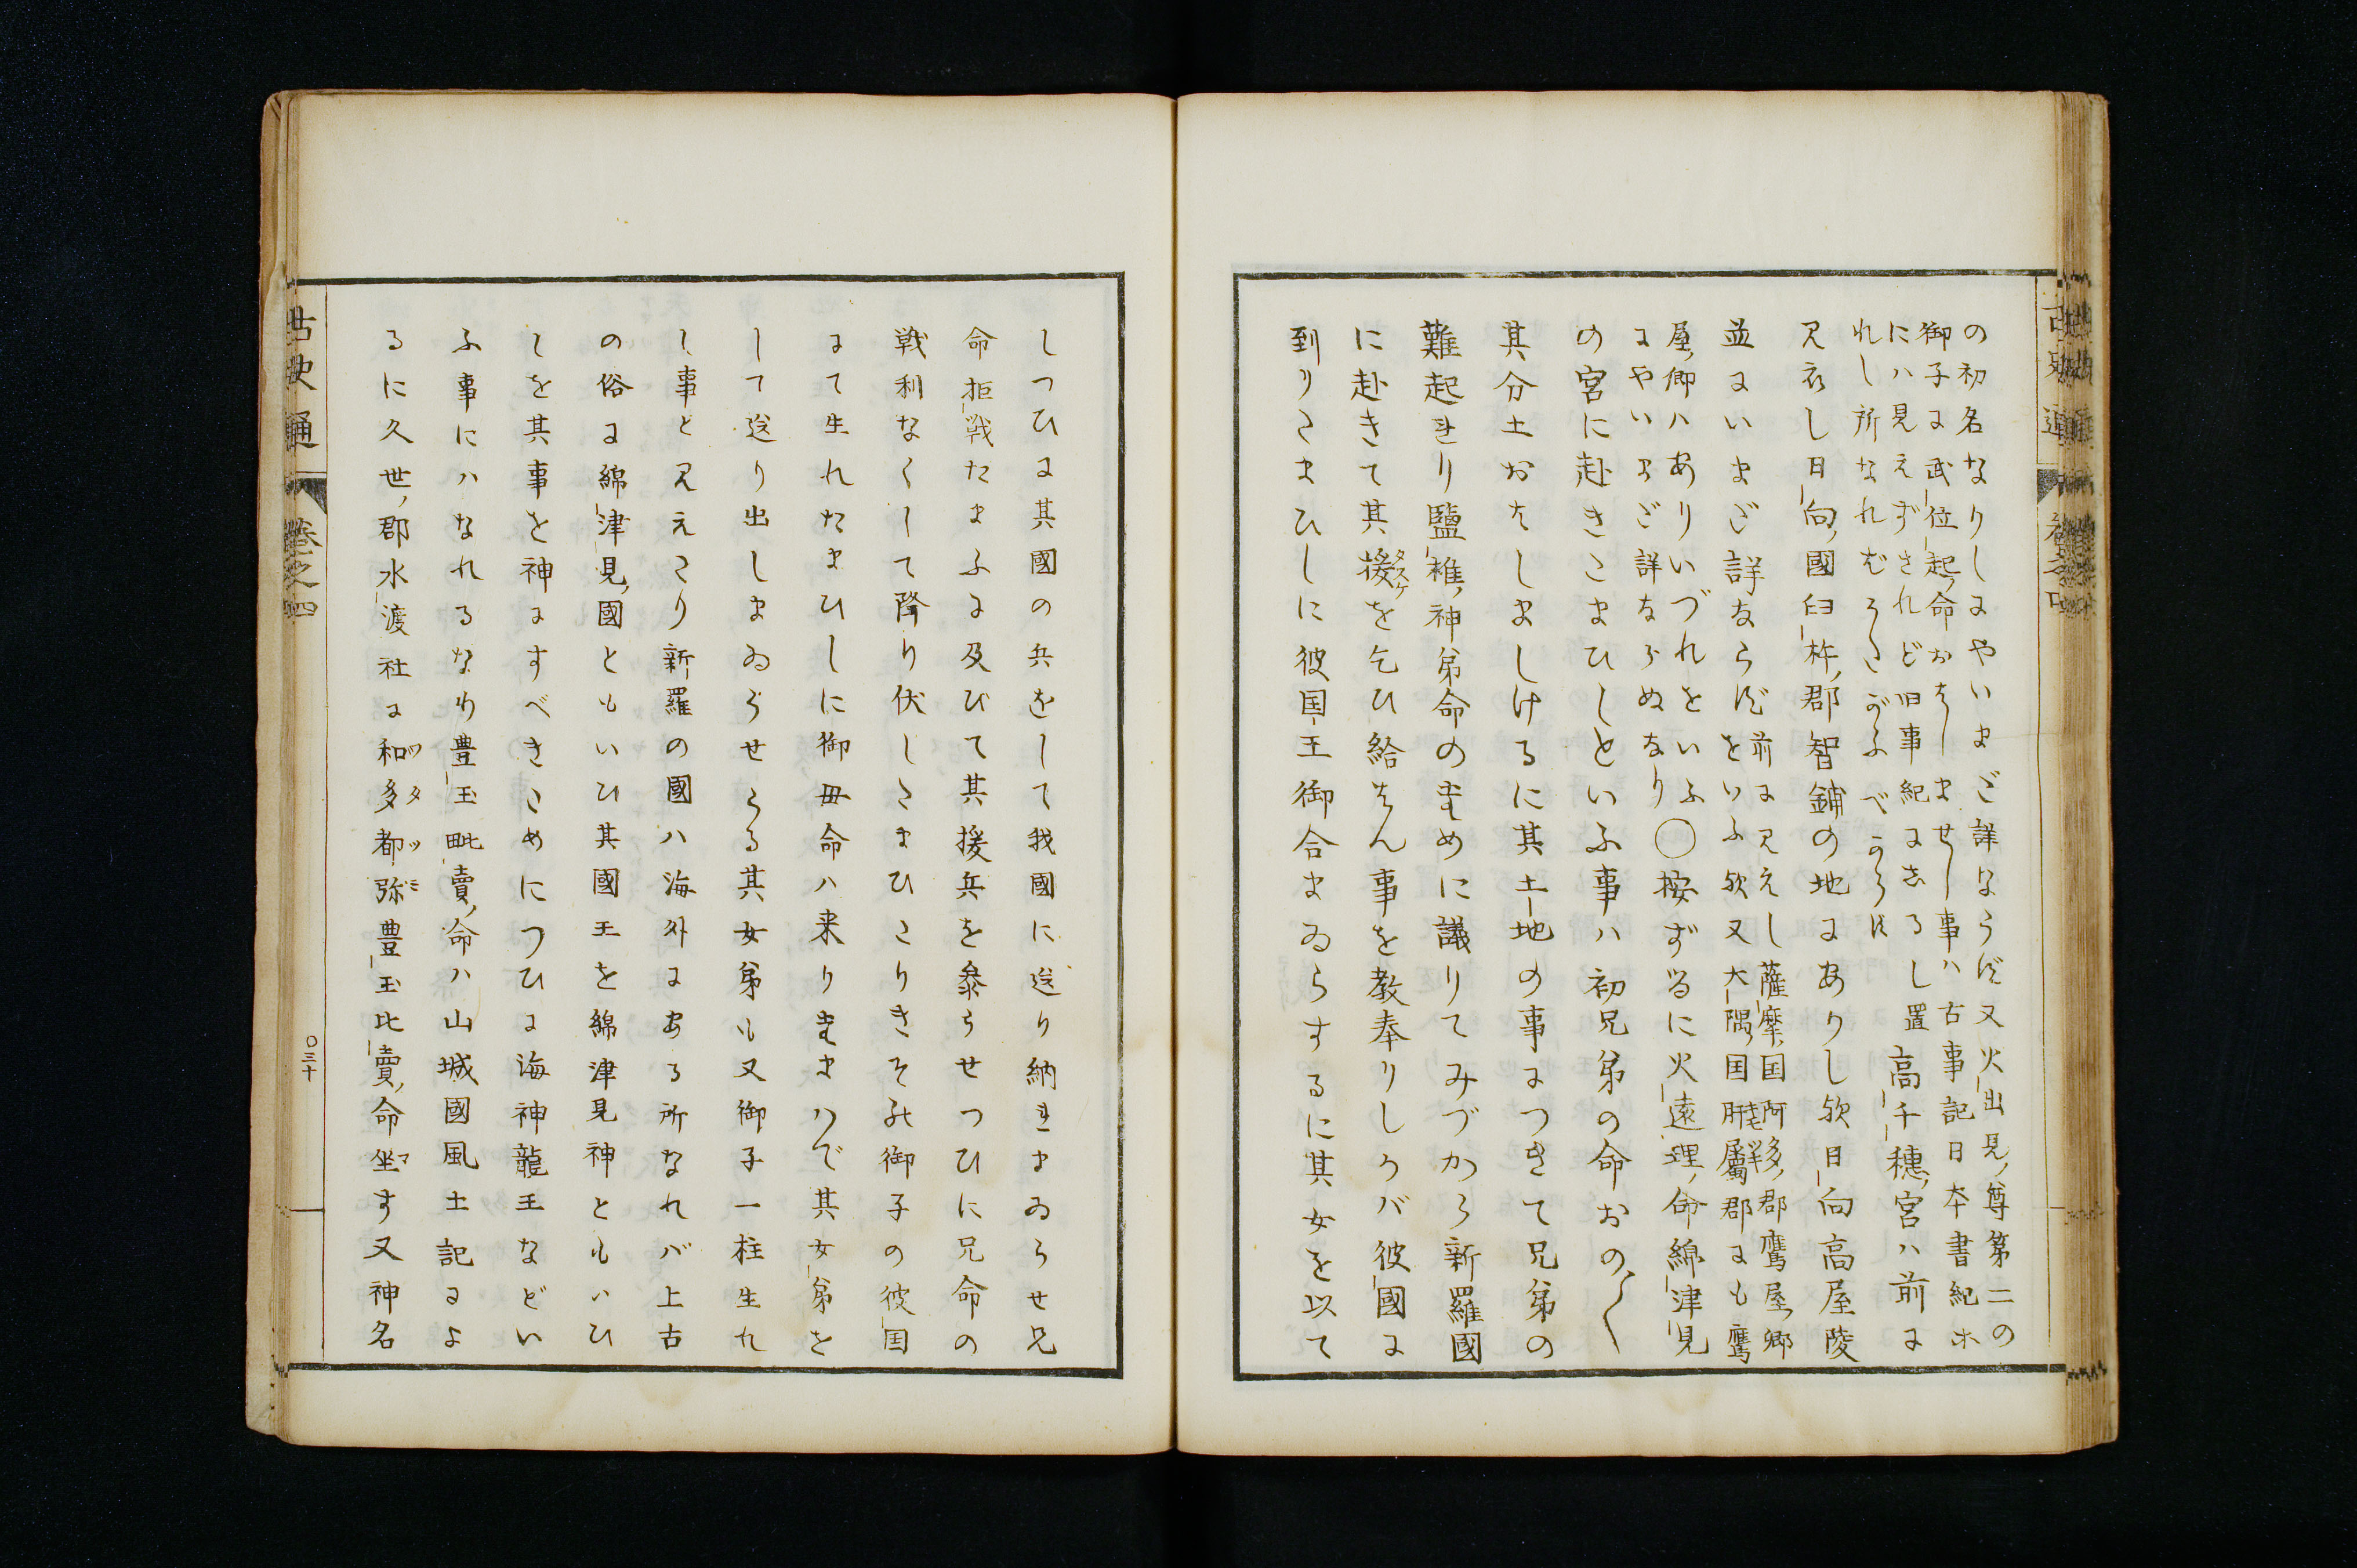 の初名なりしにやいまだ詳ならず又火出見尊第二の
御子に武位起命おはしませし事ハ古事記日本書紀ホ
にハ見えずされど旧事紀にしるし置
れし所なれむうたがふべからず
高千穂宮ハ前に
見えし日向國臼杵郡智鋪の地にありし欤日向高屋陵
並にいまだ詳ならずといふ
前に見えし薩摩国阿多郡鷹屋郷
欤又大隅国肝属郡にも鷹
屋郷ハありいづれをいふ
にやいまだ詳ならぬなり
○按ずるに火遠理命綿津見
の宮に赴きたまひしといふ事ハ初兄弟の命おの〱
其分土おはしましけるに其土地の事につきて兄弟の
難起れり鹽椎神弟命のために議りてみづから新羅國
に赴きて其援を乞ひ給はん事を教奉りしかバ彼國に
到りたまひしに彼国王御合まゐらするに其女を以て
しつひに其國の兵をして我國に送り納れまゐらせ兄
命拒戦たまふに及びて其援兵を参らせつひに兄命の
戦利なくして降り伏したまひたりきそれ御子の彼国
にて生れたまひしに御母命ハ来りたまハで其女弟を
して送り出しまゐらせらる其女弟も又御子一柱生れ
し事と見えたり新羅の國ハ海外にある所なれバ上古
の俗に綿津見國ともいひ其國王を綿津見神ともいひ
しを其事を神にすべきためにつひに海神龍王などい
ふ事にハなれるなり豊玉毗賣命ハ山城國風土記によ
るに久世郡水渡社に和多都弥豊玉比賣命坐す又神名
古史通
巻之四
〇三十
古史通